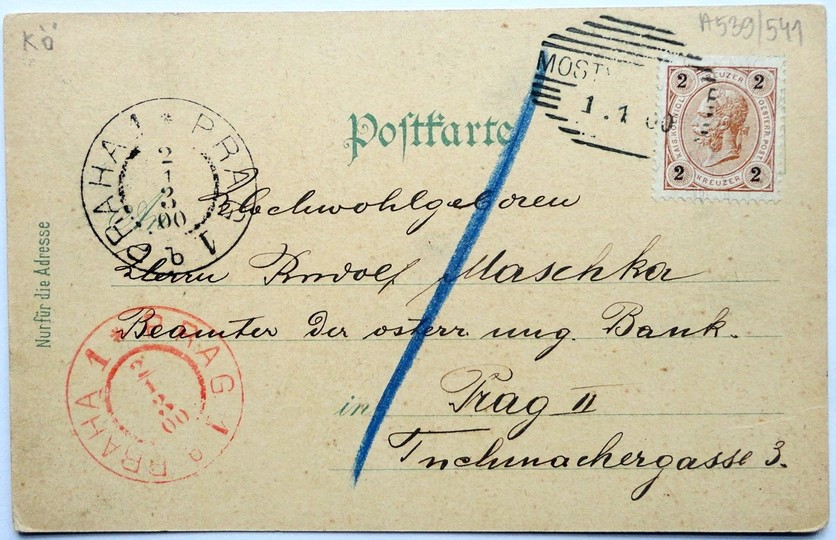 Kö
A539/541
MOST
1.1 00
2 KREUZER 2
KAIS. KOENIGL. OESTERR. POST.
2 KREUZER 2
Postkarte
PRAHA 1 * PRAG 1
2
1
3
00
b
Hochwohlgeboren
Herrn Rudolf Maschka
Beamter der österr. ung. Bank.
in Prag II
Tuchmachergasse 3.
Nur für die Adresse
PRAHA 1 * PRAG 1
00